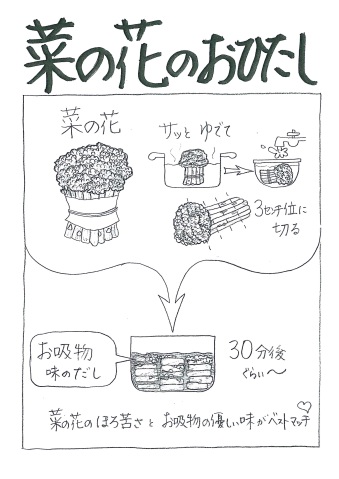 菜の花のおひたし
菜の花
サッと ゆでて
3センチ位に
切る
お吸物
味のだし
30分後
ぐらい〜
菜の花のほろ苦さと お吸物の優しい味がベストマッチ♡